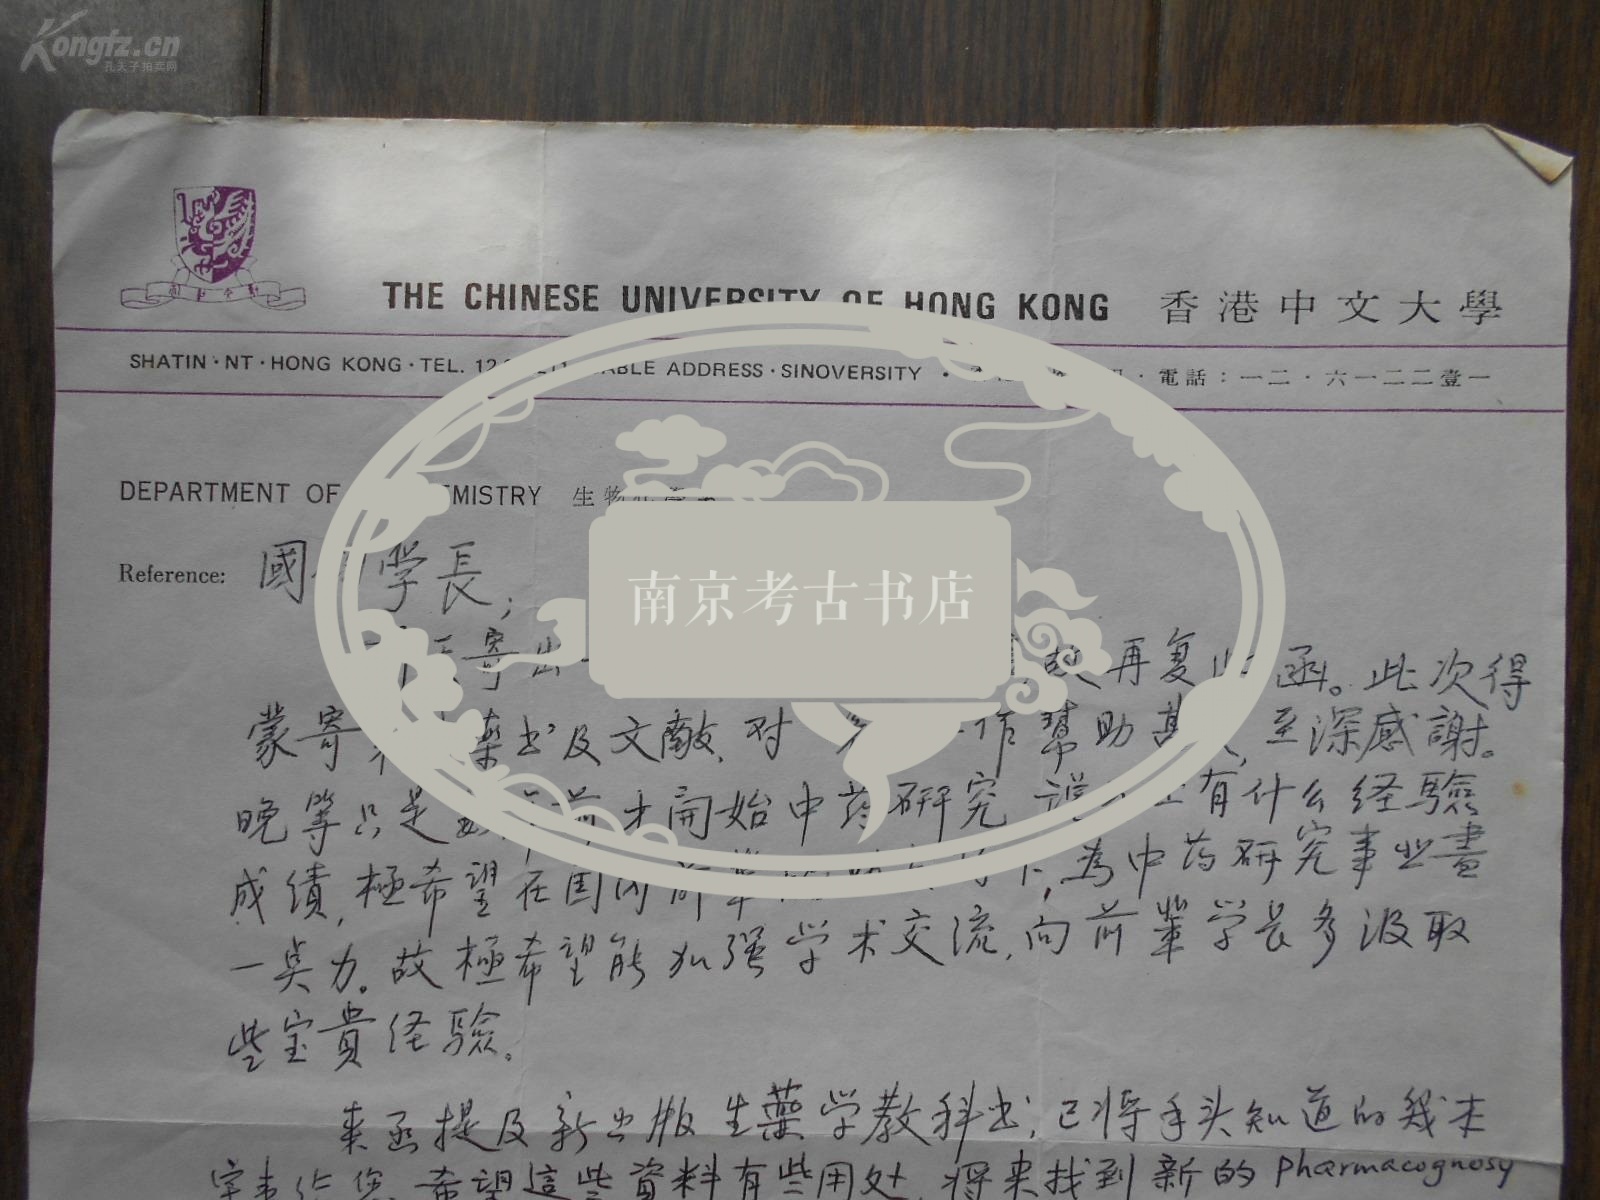 Kongfz.cn
孔夫子拍卖网
THE CHINESE UNIVERSITY OF HONG KONG 香港中文大學
SHATIN · NT · HONG KONG · TEL. CABLE ADDRESS · SINOVERSITY · 電話：一二·六一二二壹一
DEPARTMENT OF 生物
Reference: 國 学長；
南京考古书店
寄出 故再复 函。此次得
蒙寄 药书及文献，对 幫助甚 ，至深感謝。
晚等只是 前才開始中药研究 有什么経驗
成绩，極希望在国内前輩 下，為中药研究事业盡
一点力。故極希望能加强学术交流，向前輩学長多汲取
些宝貴经驗。
来函提及新出版生藥学教科书；已将手头知道的幾本
寄 您，希望這些資料有些用处，将来找到新的 Pharmacognosy